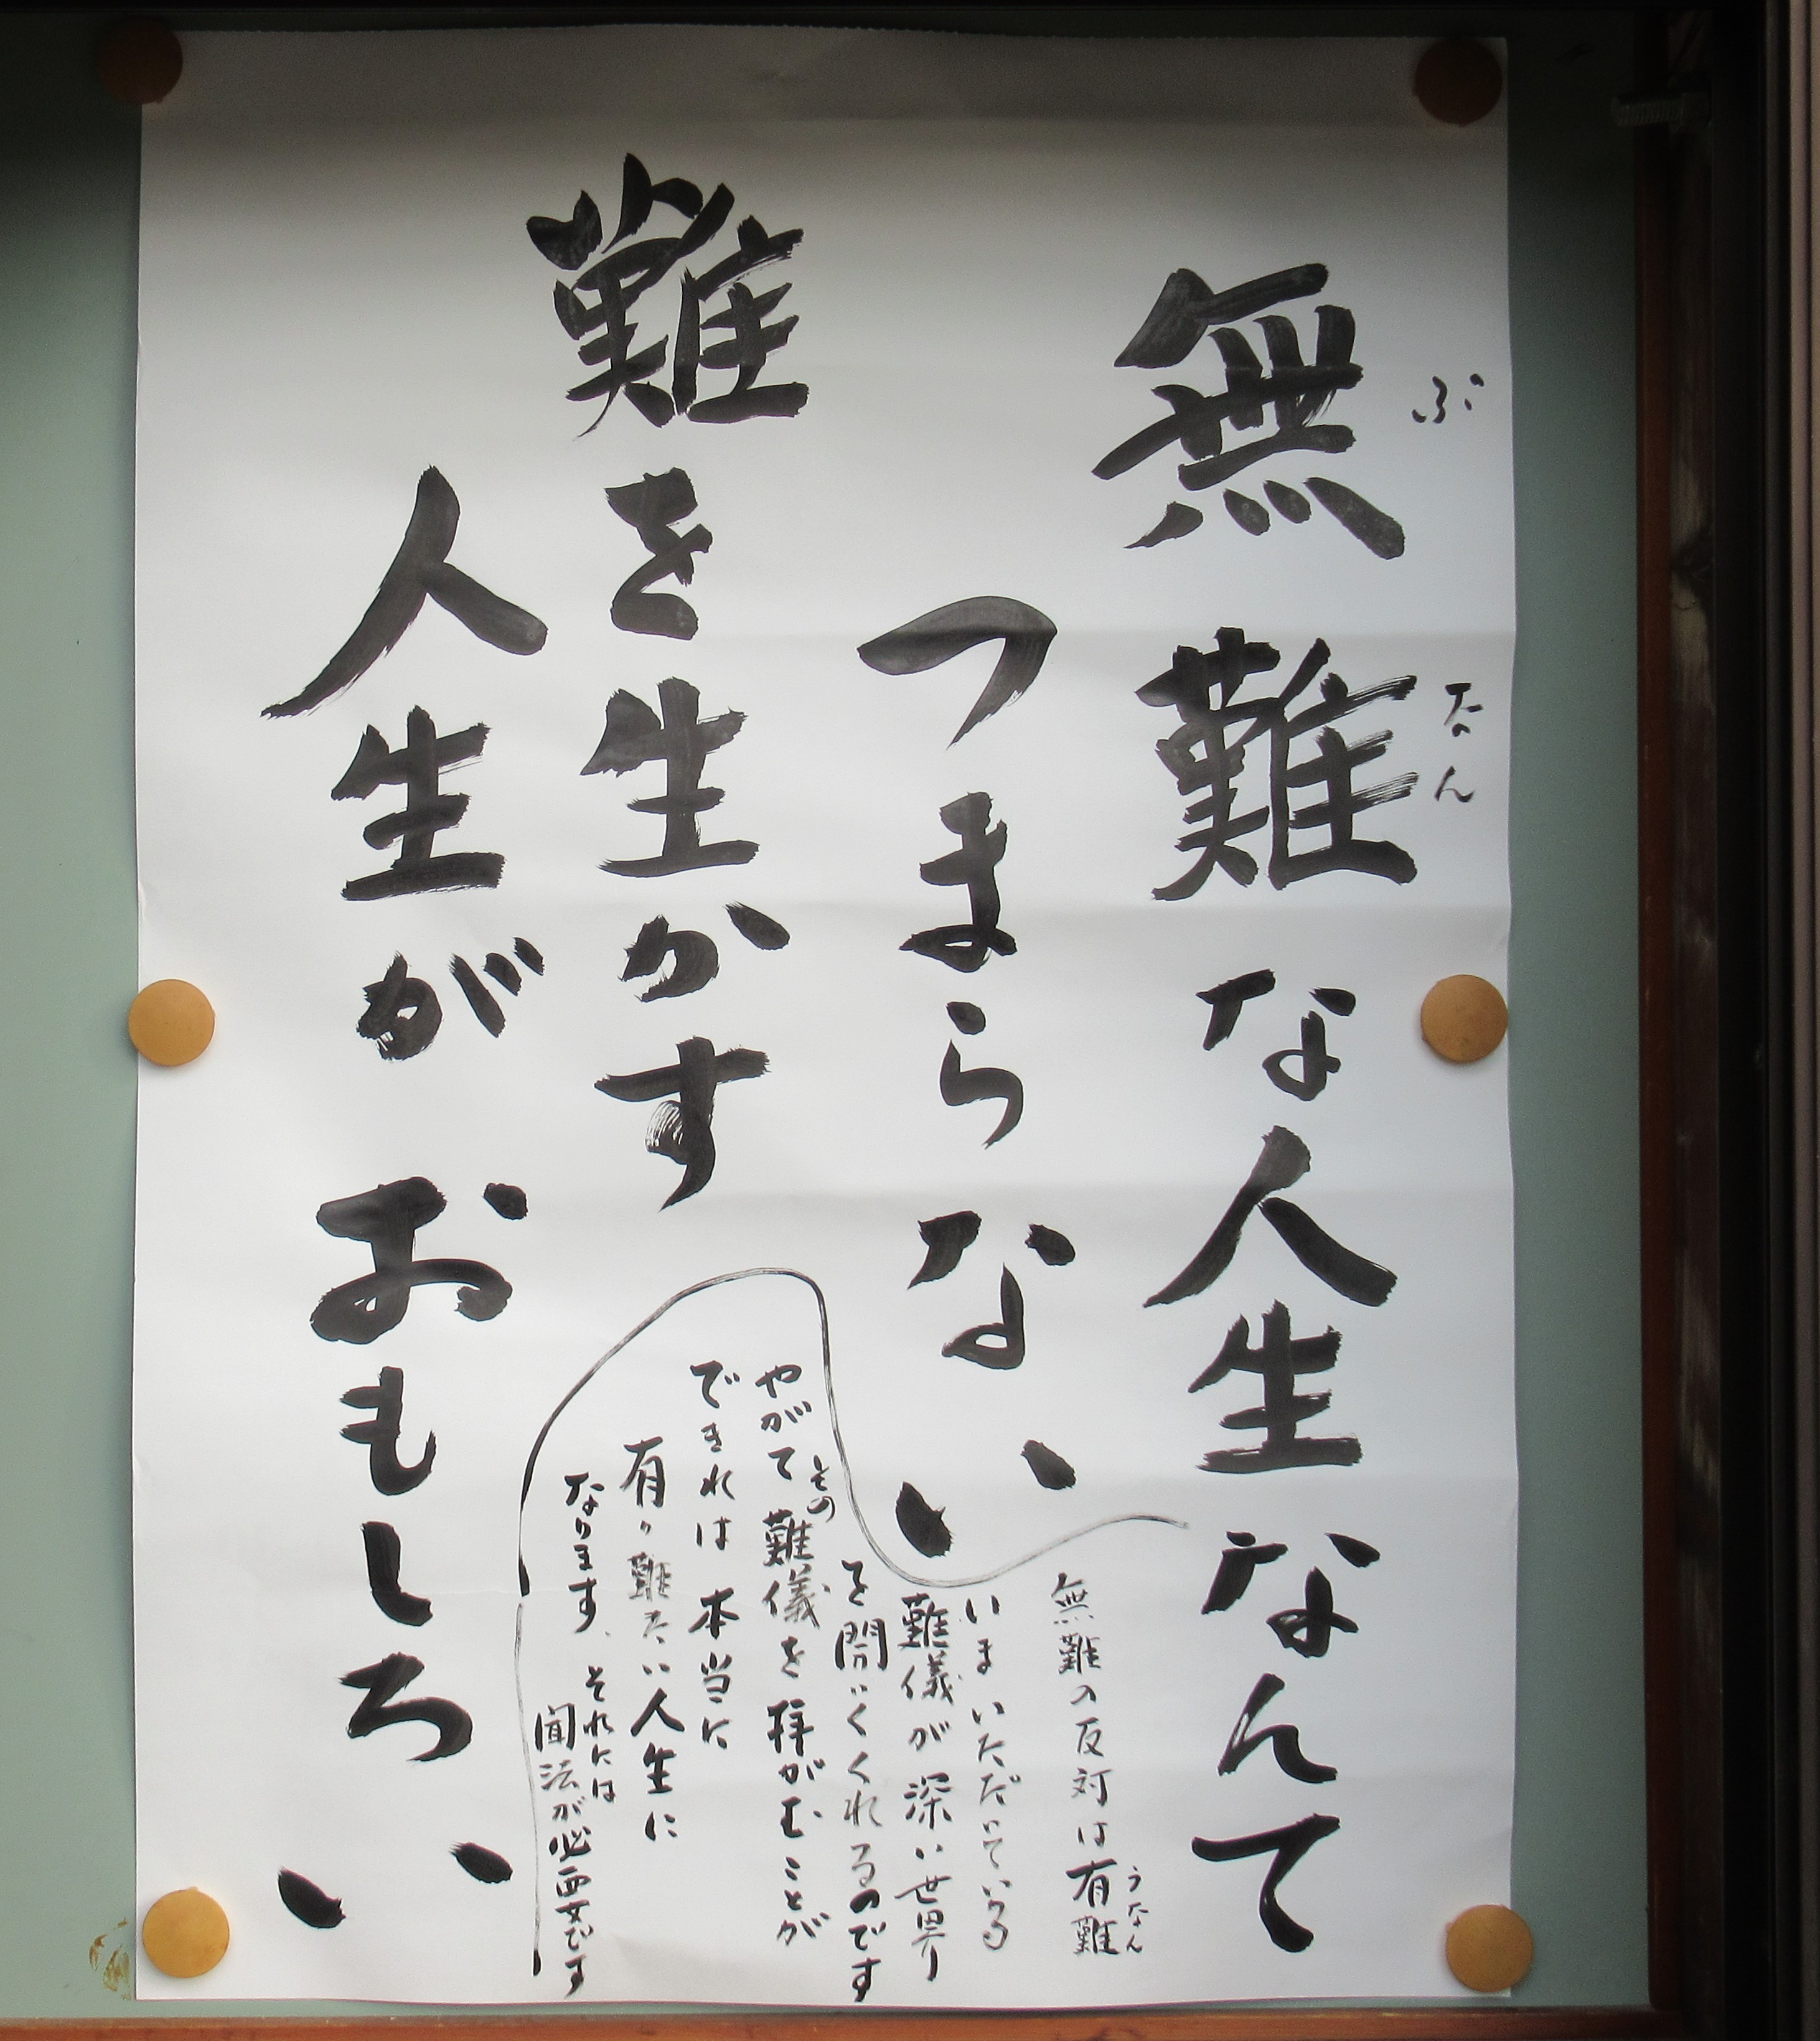 無難な人生なんて
ぶなん
つまらない
難を生かす
人生がおもしろい
無難の反対は有難
うなん
いまいただいている
難儀が深い世界
を開いてくれるのです
やがてその難儀を拝がむことが
できれは本当に
有り難たい人生に
なります、それには
聞法が必要です